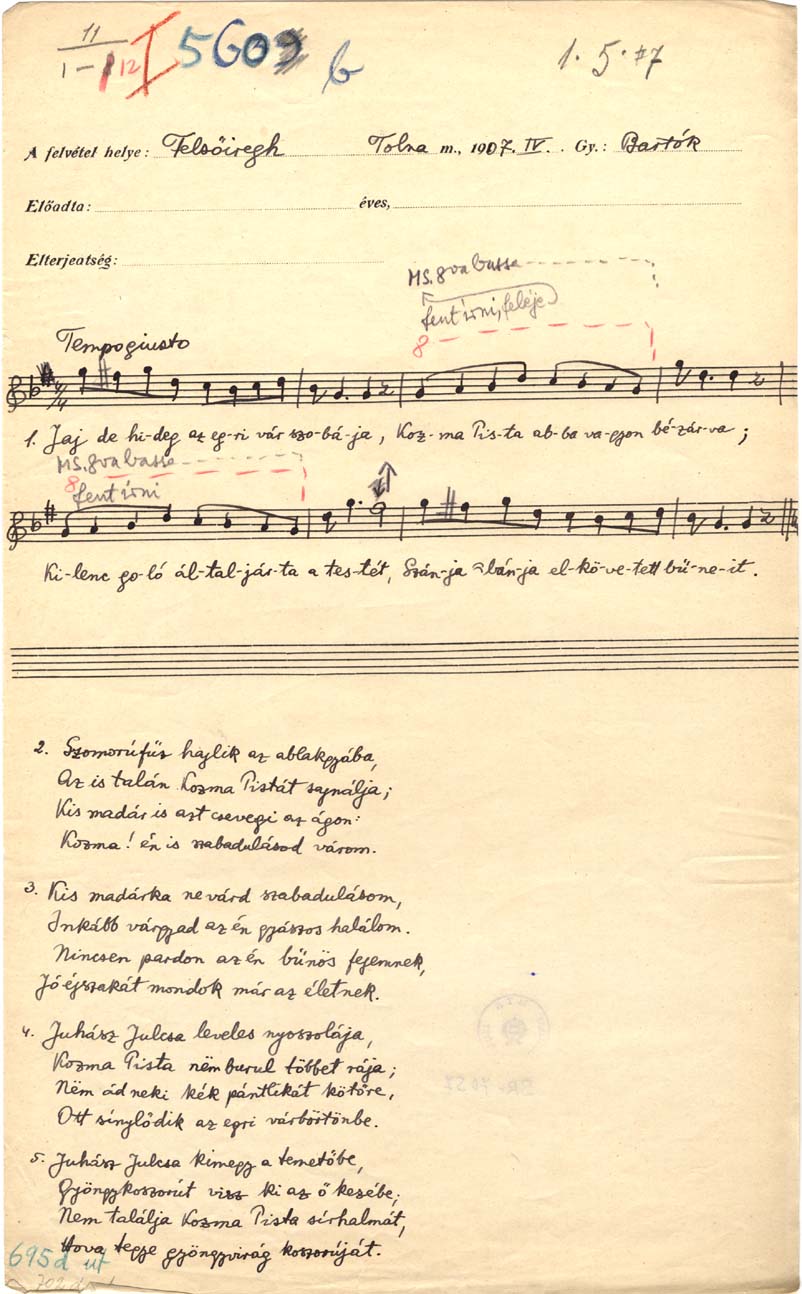 11
1 – 12 I 5603 b
1. 5. 77
A felvétel helye: Felsőiregh Tolna m., 1907. IV. Gy.: Bartók
Előadta: éves,
Elterjeatség:
MS. 8va bassa
fent irni, feléje
8
Tempo giusto
1. Jaj de hi-deg az eg-ri vár szo-bá-ja, Koz-ma Pis-ta ab-ba va-gyon bé-zár-va;
MS. 8va bassa
8
fent irni
Ki-lenc go-ló ál-tal-jár-ta a tes-tét, Szán-ja bán-ja el-kö-ve-tett bű-ne-it.
2. Szomorúfűz hajlik az ablakgyába,
Az is talán Kozma Pistát sajnálja;
Kis madár is azt csevegi az ágon:
Kozma! én is szabadulásod várom.
3. Kis madárka ne várd szabadulásom,
Inkább várgyad az én gyászos halálom.
Nincsen pardon az én bűnös fejemnek,
Jó éjszakát mondok már az életnek.
4. Juhász Julcsa leveles nyoszolája,
Kozma Pista nëm burul többet rája;
Nëm ád neki kék pántlikát kötőre,
Ott sínylődik az egri várbörtönbe.
5. Juhász Julcsa kimegy a temetőbe,
Gyöngykoszorút visz ki az ő kezébe;
Nem találja Kozma Pista sírhalmát,
Hova tegye gyöngyvirág koszorúját.
695d
702d